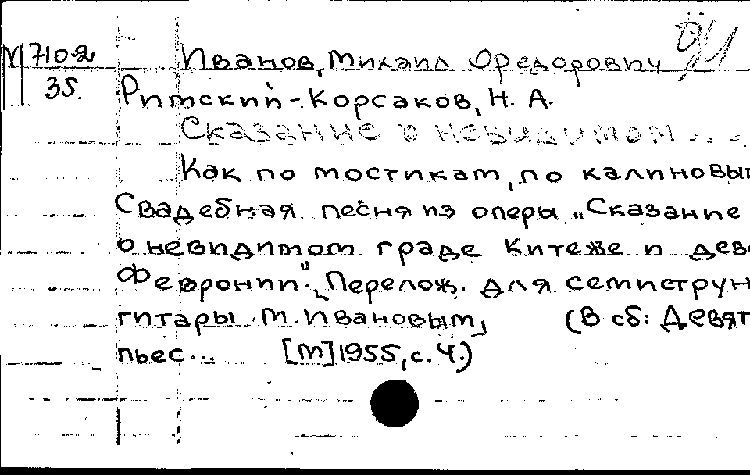 М 710-2
35.
Иванов, Михаил Федорович
Римский-Корсаков, Н. А.
Сказание о невидимом . . .
Как по мостикам, по калиновы
Свадебная песня из оперы „Сказание
о невидимом граде Китеже и дев
Февронии". Перелож. для семиструн
гитары М. Ивановым, (В сб: Девят
пьес... [М] 1955, с. 4.)